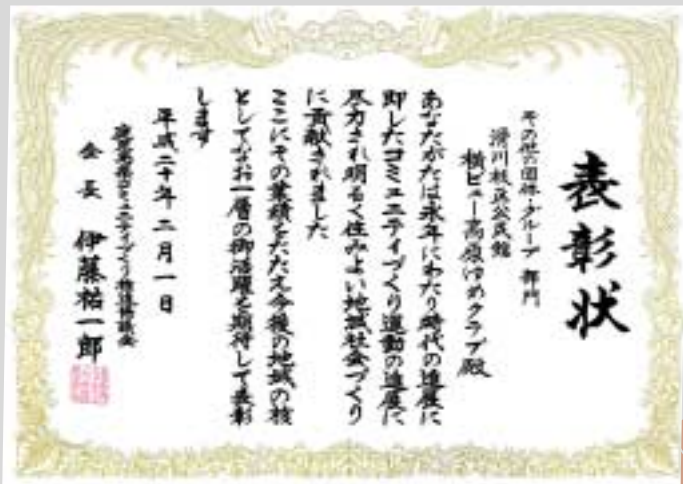 表彰状
その他の団体・グループ部門
滑川校区公民館
横ビュー高原ゆめクラブ殿
あなたがたは永年にわたり時代の進展に
即したコミュニティづくり運動の進展に
尽力され明るく住みよい地域社会づくり
に貢献されました
ここにその業績をたたえ今後の地域の核
としてなお一層の御活躍を期待して表彰
します
平成二十年二月一日
鹿児島県コミュニティづくり推進協議会
会長 伊藤祐一郎